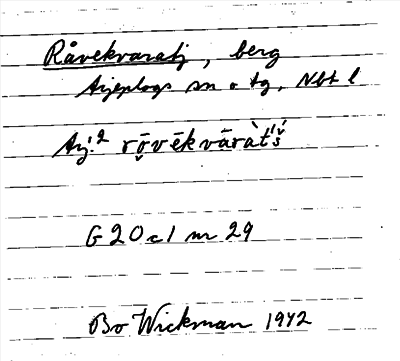 Råvekvaratj, berg
Arjeplogs sn o tg, Nbt l
Arj.2 rō̬vēkvāràt́š́
G 20 c1 nr 29
Bo Wickman 1942